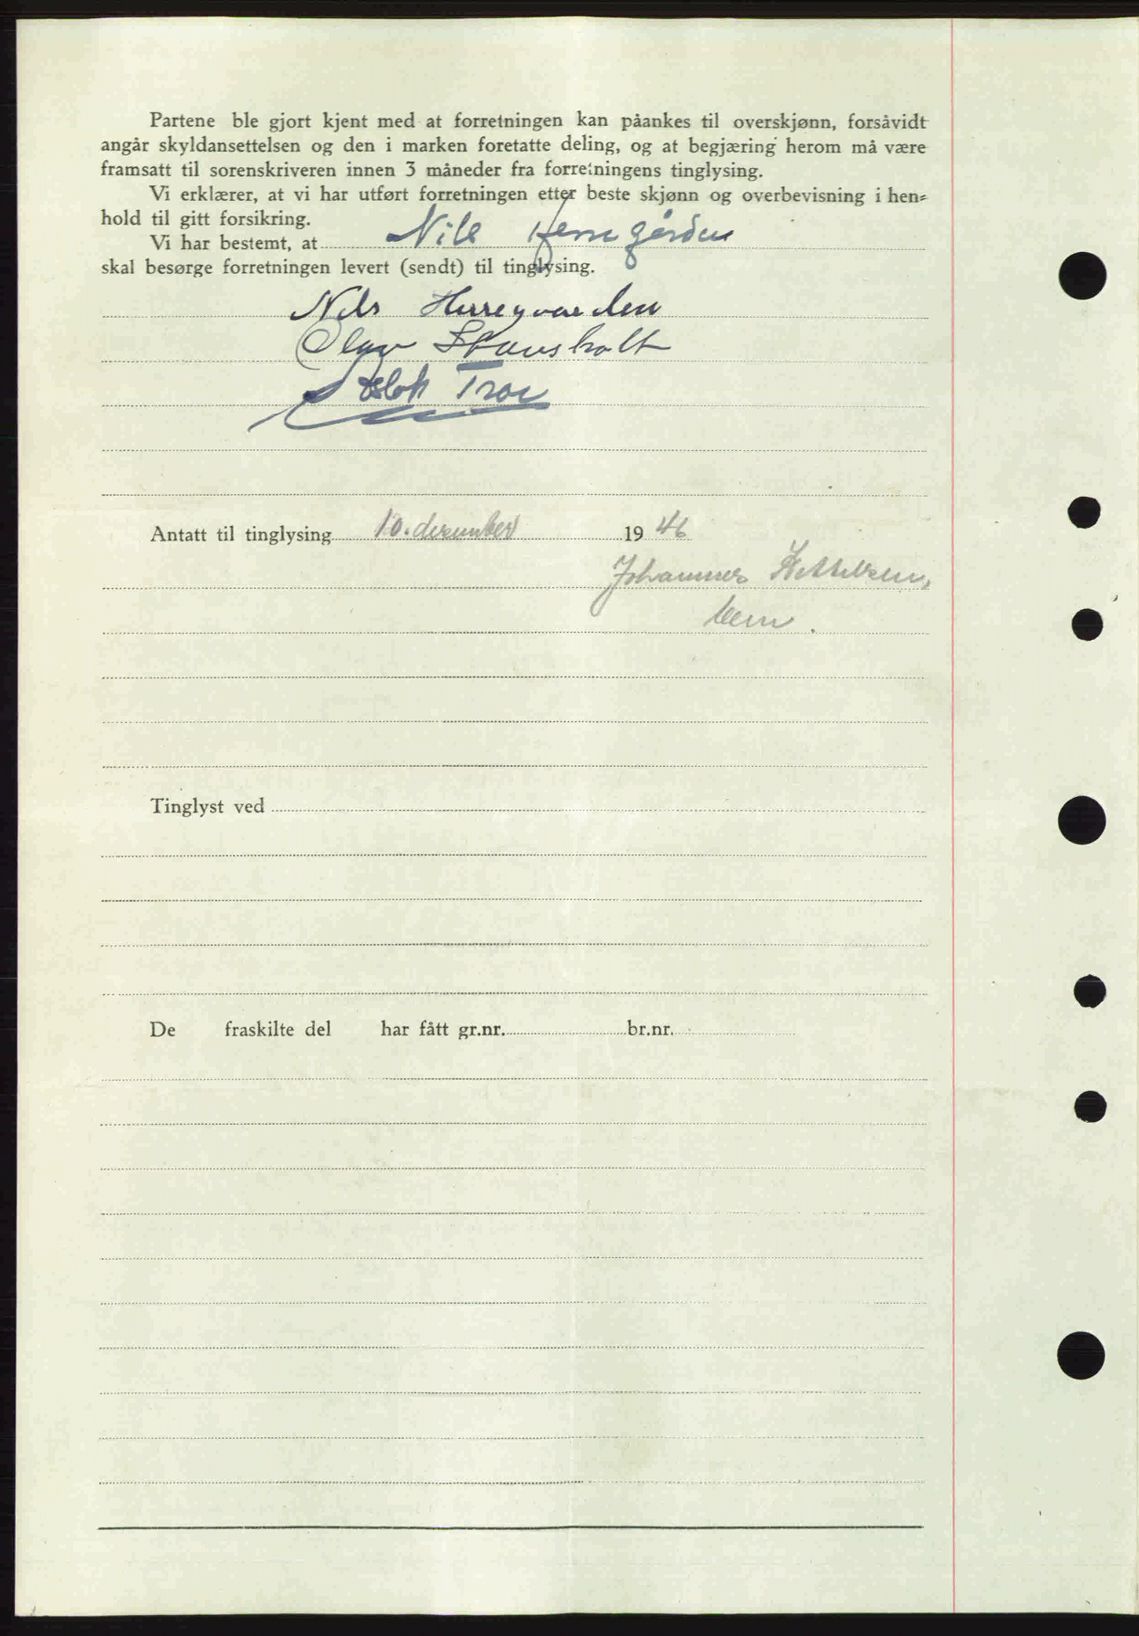 Partene ble gjort kjent med at forretningen kan påankes til overskjønn, forsåvidt
angår skyldansettelsen og den i marken foretatte deling, og at begjæring herom må være
framsatt til sorenskriveren innen 3 måneder fra forretningens tinglysing.
Vi erklærer, at vi har utført forretningen etter beste skjønn og overbevisning i hen-
hold til gitt forsikring.
Vi har bestemt, at Nils Herregården
skal besørge forretningen levert (sendt) til tinglysing.
Nils Herregaarden
Olav Stausholt
Aslak Troe
Antatt til tinglysing 10. desember 1946
Johannes Kittilsen,
Tinglyst ved
De fraskilte del har fått gr.nr. br.nr.